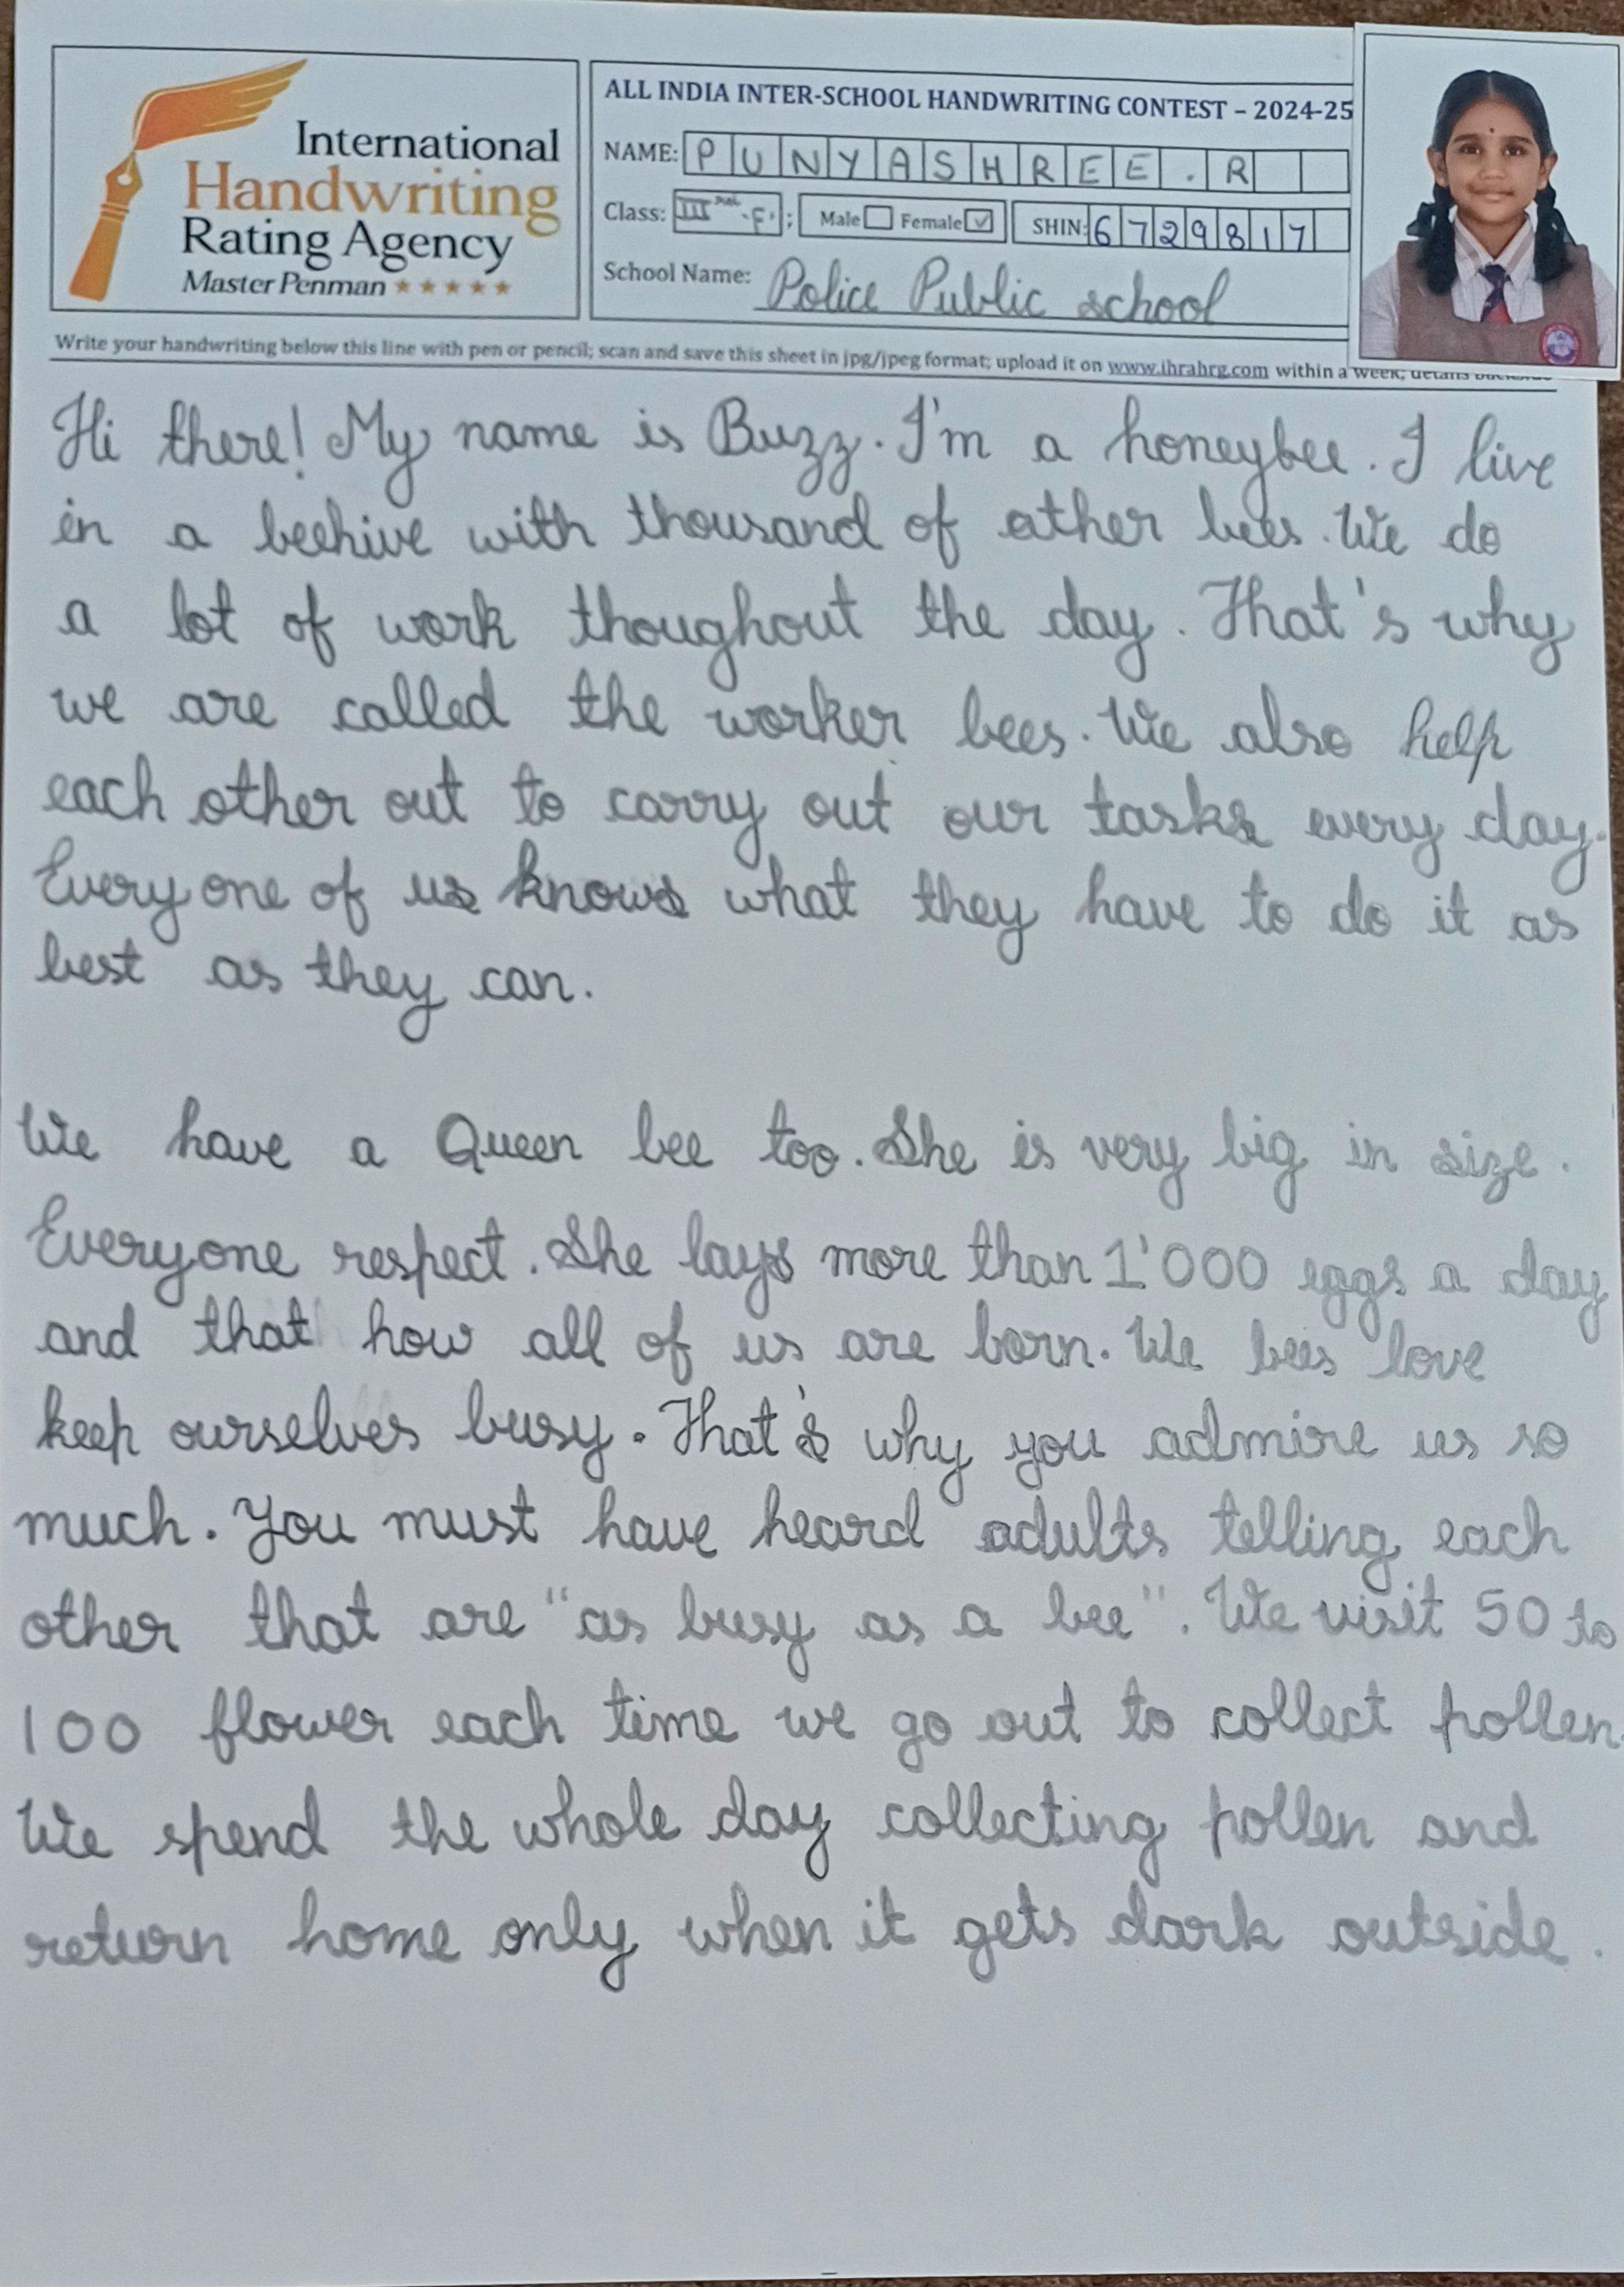 International
Handwriting
Rating Agency
Master Penman
ALL INDIA INTER-SCHOOL HANDWRITING CONTEST – 2024-25
NAME: PUNYASHREE.R
Class: III 'F'; Male Female ✓ SHIN: 6729817
School Name: Police Public school
Write your handwriting below this line with pen or pencil; scan and save this sheet in jpg/jpeg format; upload it on www.ihrahrg.com within a week;
Hi there! My name is Buzz. I'm a honeybee. I live
in a beehive with thousand of ather bees. We do
a lot of work thoughout the day. That's why
we are called the worker bees. We also help
each other out to carry out our tasks every day.
Every one of us knows what they have to do it as
best as they can.
We have a Queen bee too. She is very big in size.
Everyone respect. She lays more than 1'000 eggs a day
and that how all of us are born. We bees love
keep ourselves busy. That's why you admire us so
much. You must have heard adults telling each
other that are "as busy as a bee". We visit 50 to
100 flower each time we go out to collect pollen.
We spend the whole day collecting pollen and
return home only when it gets dark outside.